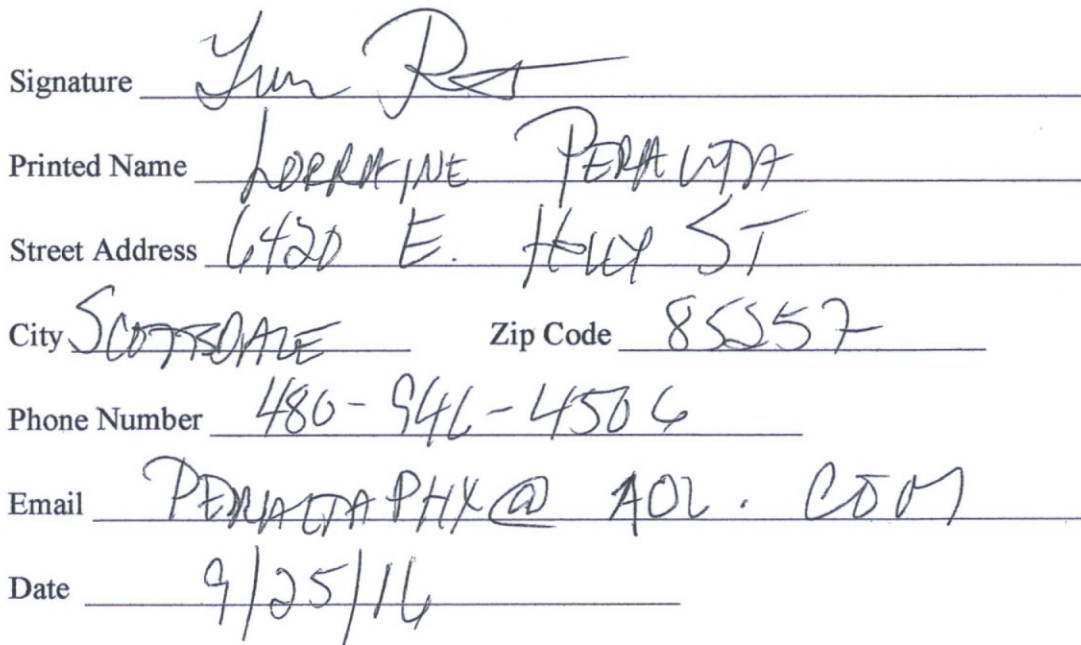 Signature
Printed Name LORRAINE PERALTA
Street Address 6420 E. HOLLY ST
City SCOTTSDALE Zip Code 85257
Phone Number 480-946-4506
Email PERALTAPHX@AOL.COM
Date 9/25/16